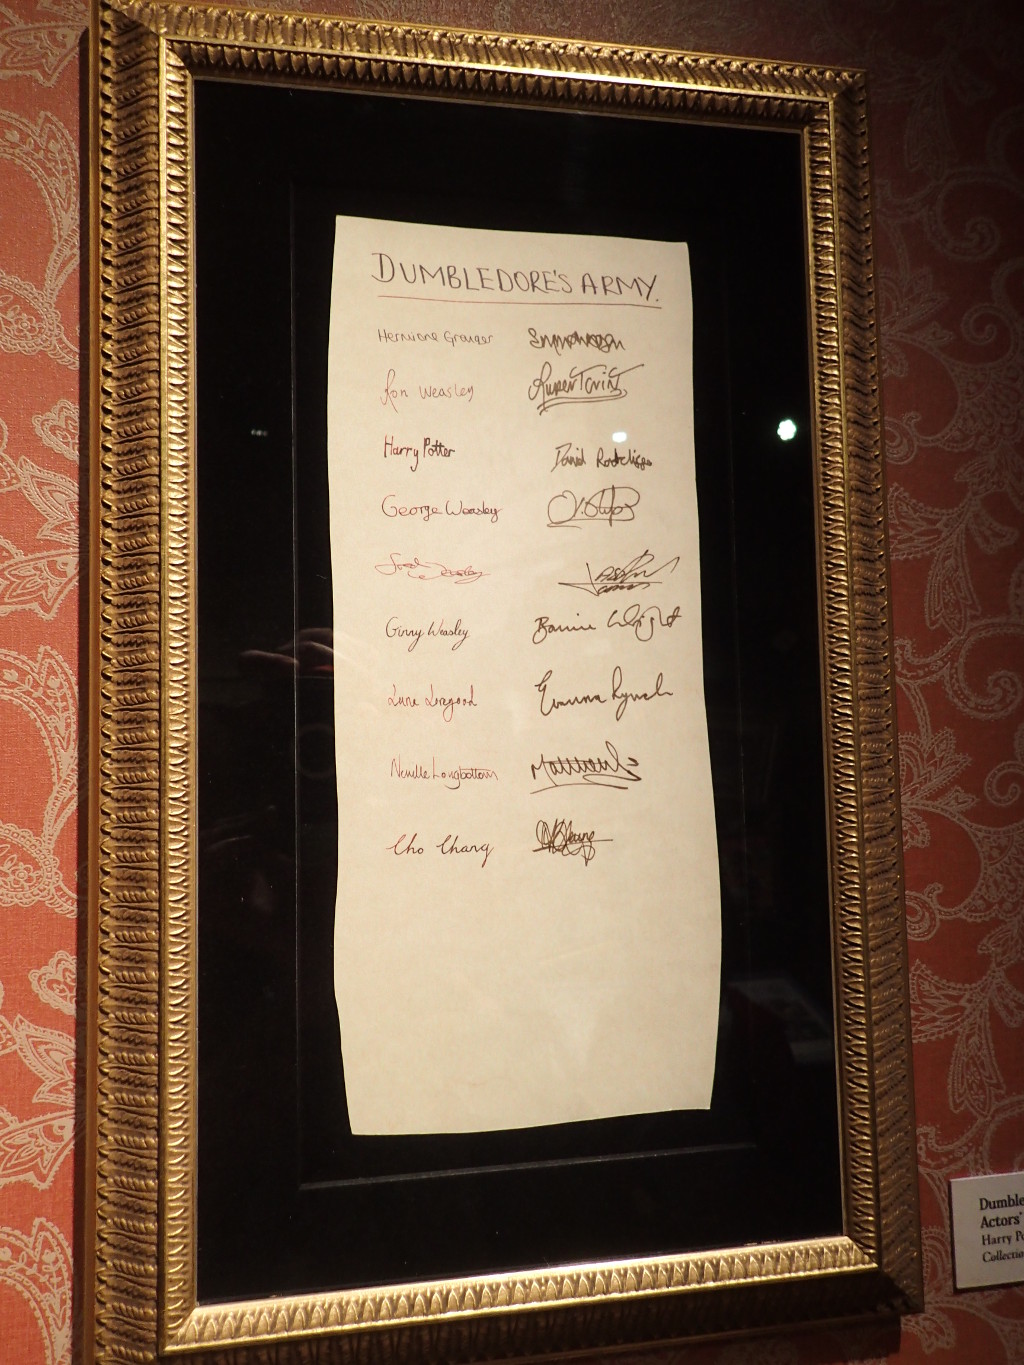 DUMBLEDORE'S ARMY.
Hermione Granger
Ron Weasley Rupert Grint
Harry Potter
George Weasley
Fred Weasley
Ginny Weasley Bonnie Wright
Luna Lovegood Evanna Lynch
Neville Longbottom
Cho Chang
Dumble
Actors'
Harry Po
Collectio